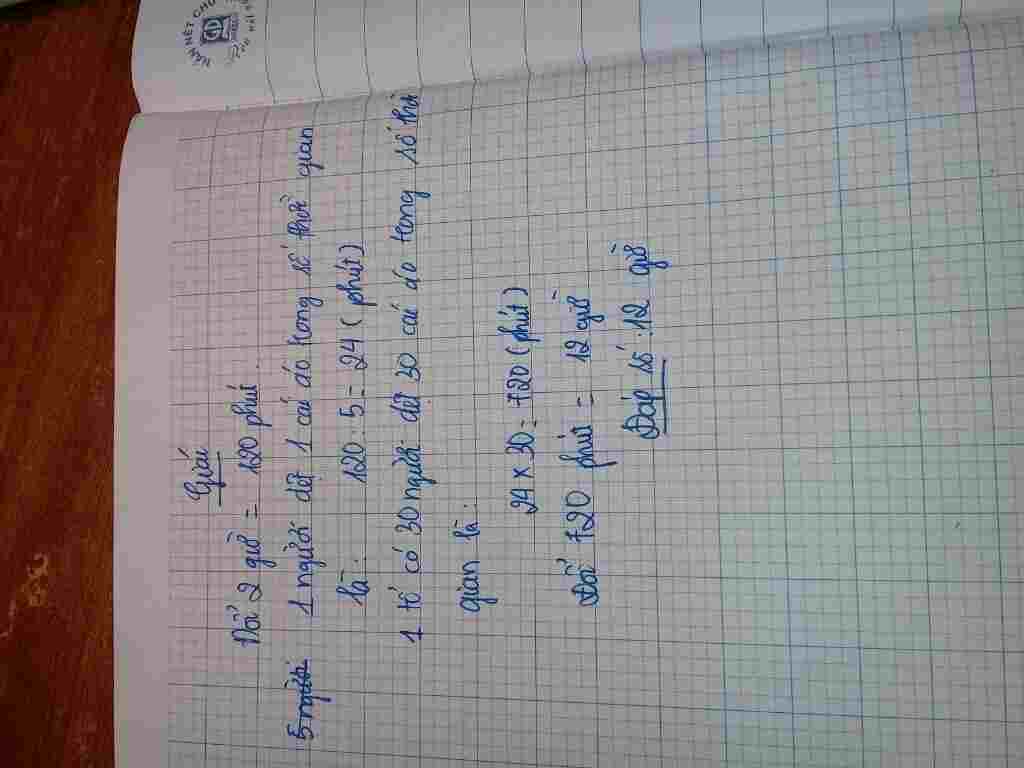 Giải
Đổi 2 giờ = 120 phút.
5 người 1 người dệt 1 cái áo trong số thời gian
là: 120 : 5 = 24 (phút)
1 tổ có 30 người dệt 30 cái áo trong số thời
gian là:
24 x 30 = 720 (phút)
Đổi 720 phút = 12 giờ
Đáp số: 12 giờ
NÉT CHỮ
GD